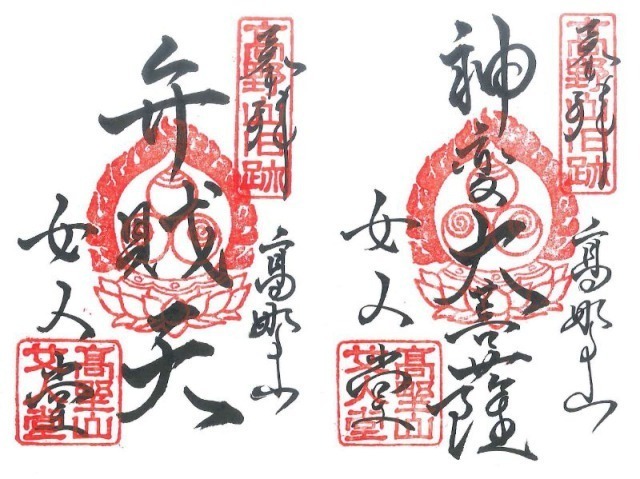 奉拝
高野山旧跡
高野山
神変大菩薩
女人堂
高野山女人堂
奉拝
高野山旧跡
高野山
弁戝天
女人堂
高野山女人堂